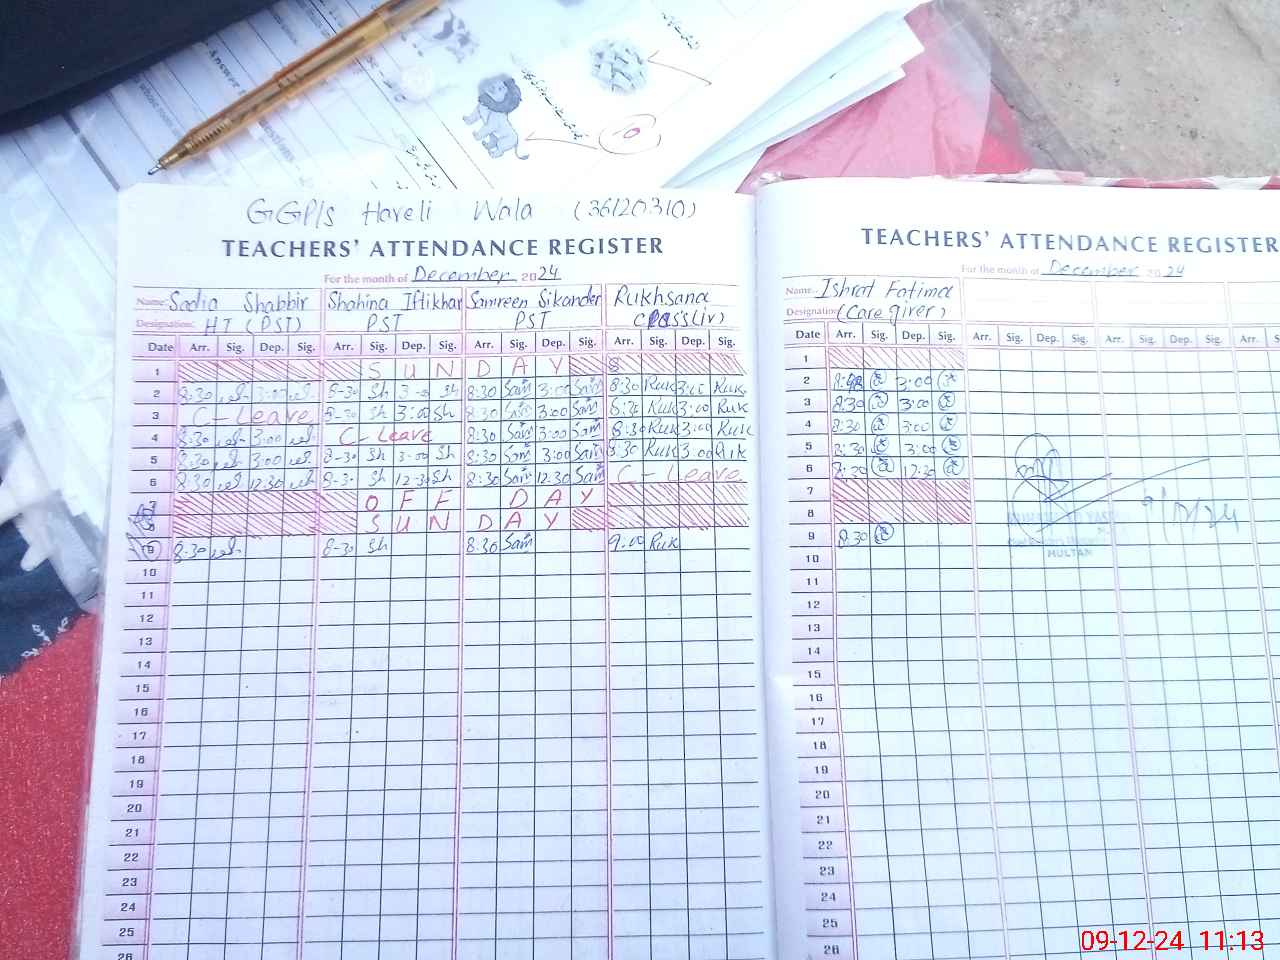 GGP/S Haveli Wala (36120310)
TEACHERS' ATTENDANCE REGISTER
For the month of December 2024
Name Sadia Shabbir Shahina Iftikhar Samreen Sikander Rukhsana
Designation HT (PST) PST PST Class(iv)
Date Arr. Sig. Dep. Sig. Arr. Sig. Dep. Sig. Arr. Sig. Dep. Sig. Arr. Sig. Dep. Sig.
1 S U N D A Y
2 8:30 3:00 8-30 Sh 3-0 Sh 8:30 Sam 3:00 Sam 8:30 Ruk 3:00 Ruk
3 C-Leave 8-30 Sh 3:00 Sh 8:30 Sam 3:00 Sam 8:30 Ruk 3:00 Ruk
4 8:30 3:00 C-Leave 8:30 Sam 3:00 Sam 8:30 Ruk 3:00 Ruk
5 8:30 3:00 8-30 Sh 3-00 Sh 8:30 Sam 3:00 Sam 8:30 Ruk 3:00 Ruk
6 8:30 12:30 8-30 Sh 12-30 Sh 8:30 Sam 12:30 Sam C-Leave
7 O F F D A Y
8 S U N D A Y
9 8:30 8-30 Sh 8:30 Sam 9:00 Ruk
10
11
12
13
14
15
16
17
18
19
20
21
22
23
24
25
26
TEACHERS' ATTENDANCE REGISTER
For the month of December 2024
Name Ishrat Fatima
Designation (Care giver)
Date Arr. Sig. Dep. Sig. Arr. Sig. Dep. Sig. Arr. Sig. Dep. Sig. Arr. Sig.
1
2 3:00
3 8:30 3:00
4 8:30 3:00
5 8:30 3:00
6 8:30 12:30
7
8
9 8:30
MULTAN
9/12/24
10
11
12
13
14
15
16
17
18
19
20
21
22
23
24
25
26
09-12-24 11:13